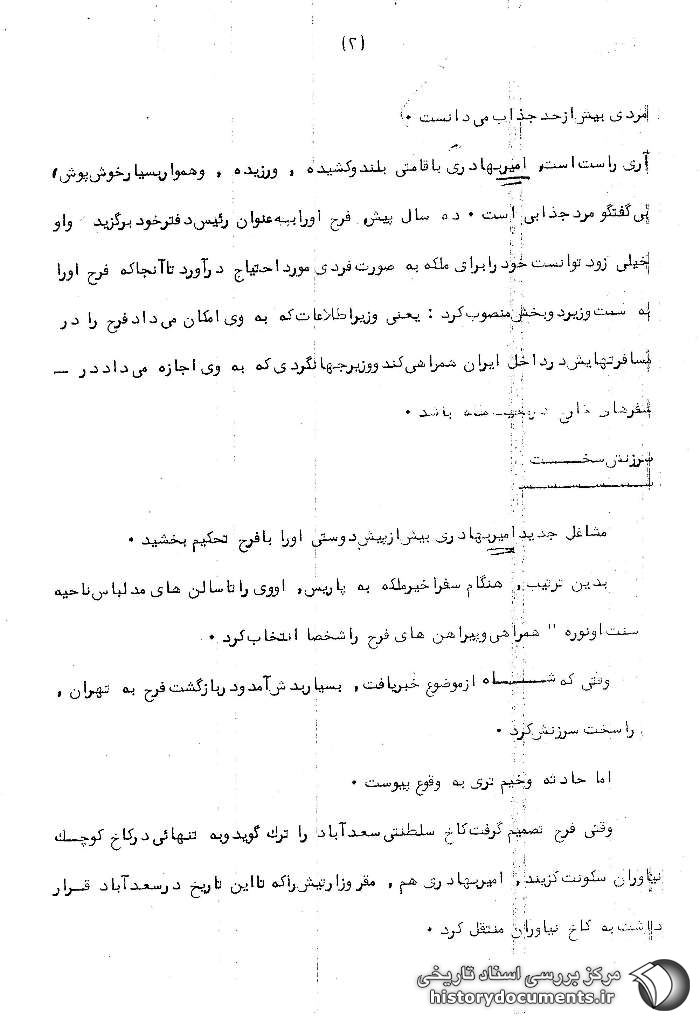 (۲)
مردی بیش از حد جذاب می دانست .
آری راست است, امیربهادری با قامتی بلند و کشیده , ورزیده , و همواره بسیار خوش پوش,
بی گفتگو مرد جذابی است . ده سال پیش, فرح او را به عنوان رئیس دفتر خود برگزید واو
خیلی زود توانست خود را برای ملکه به صورت فردی مورد احتیاج درآورد تا آنجا که فرح او را
به سمت وزیر دو بخش منصوب کرد : یعنی وزیر اطلاعات که به وی امکان می داد فرح را در
مسافرتهایش در داخل ایران همراهی کند و وزیر جهانگردی که به وی اجازه می داد در —
سفرهای باشد .
سرزنش سخت
مشاغل جدید امیربهادری بیش از پیش دوستی او را با فرح تحکیم بخشید .
بدین ترتیب, هنگام سفر اخیر ملکه به پاریس, او وی را تا سالن های مد لباس ناحیه
سنت اونوره " همراهی و پیراهن های فرح را شخصا انتخاب کرد .
وقتی که شاه از موضوع خبر یافت , بسیار بدش آمد و در بازگشت فرح به تهران ,
را سخت سرزنش کرد .
اما حادثه وخیم تری به وقوع پیوست .
وقتی فرح تصمیم گرفت کاخ سلطنتی سعدآباد را ترك گوید و به تنهائی در کاخ کوچك
نیاوران سکونت گزیند, امیربهادری هم , مقر وزارتیش را که تا این تاریخ در سعدآباد قرار
داشت به کاخ نیاوران منتقل کرد .
مرکز بررسی اسناد تاریخی
historydocuments.ir